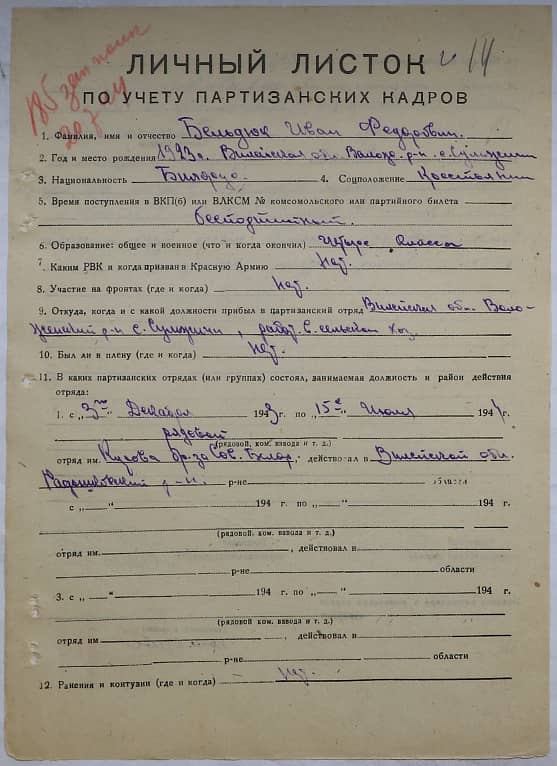 185 зап полк
20.7.44
ЛИЧНЫЙ ЛИСТОК и 14
ПО УЧЕТУ ПАРТИЗАНСКИХ КАДРОВ
1. Фамилия, имя и отчество Бельдюк Иван Федорович.
2. Год и место рождения 1923 г. Вилейская обл. Волож. р-н. с. Сулжичи
3. Национальность Билорус. 4. Соцположение Крестьянин
5. Время поступления в ВКП(б) или ВЛКСМ № комсомольского или партийного билета
беспартийный.
6. Образование: общее и военное (что и когда окончил) Четыре класса
7. Каким РВК и когда призван в Красную Армию нет.
8. Участие на фронтах (где и когда) нет.
9. Откуда, когда и с какой должности прибыл в партизанский отряд Вилейская обл. Воло-
женский р-н с. Сулжичи, работ. в сельском хоз.
10. Был ли в плену (где и когда) нет.
11. В каких партизанских отрядах (или группах) состоял, занимаемая должность и район действия
отряда:
1. с „3го” Декабря 1943 г. по „15е” Июля 1944 г.
рядовой
(рядовой, ком. взвода и т. д.)
отряд им. бр. за Сов. Белор., действовал в Вилейской обл.
Радошковский р-н. р-не области
с „ ” 194 г. по „ ” 194 г.
(рядовой, ком. взвода и т. д.)
отряд им. , действовал в
р-не области
3. с „ ” 194 г. по „ ” 194 г.
(рядовой, ком. взвода и т. д.)
отряд им. , действовал в
р-не области
12. Ранения и контузии (где и когда) нет.